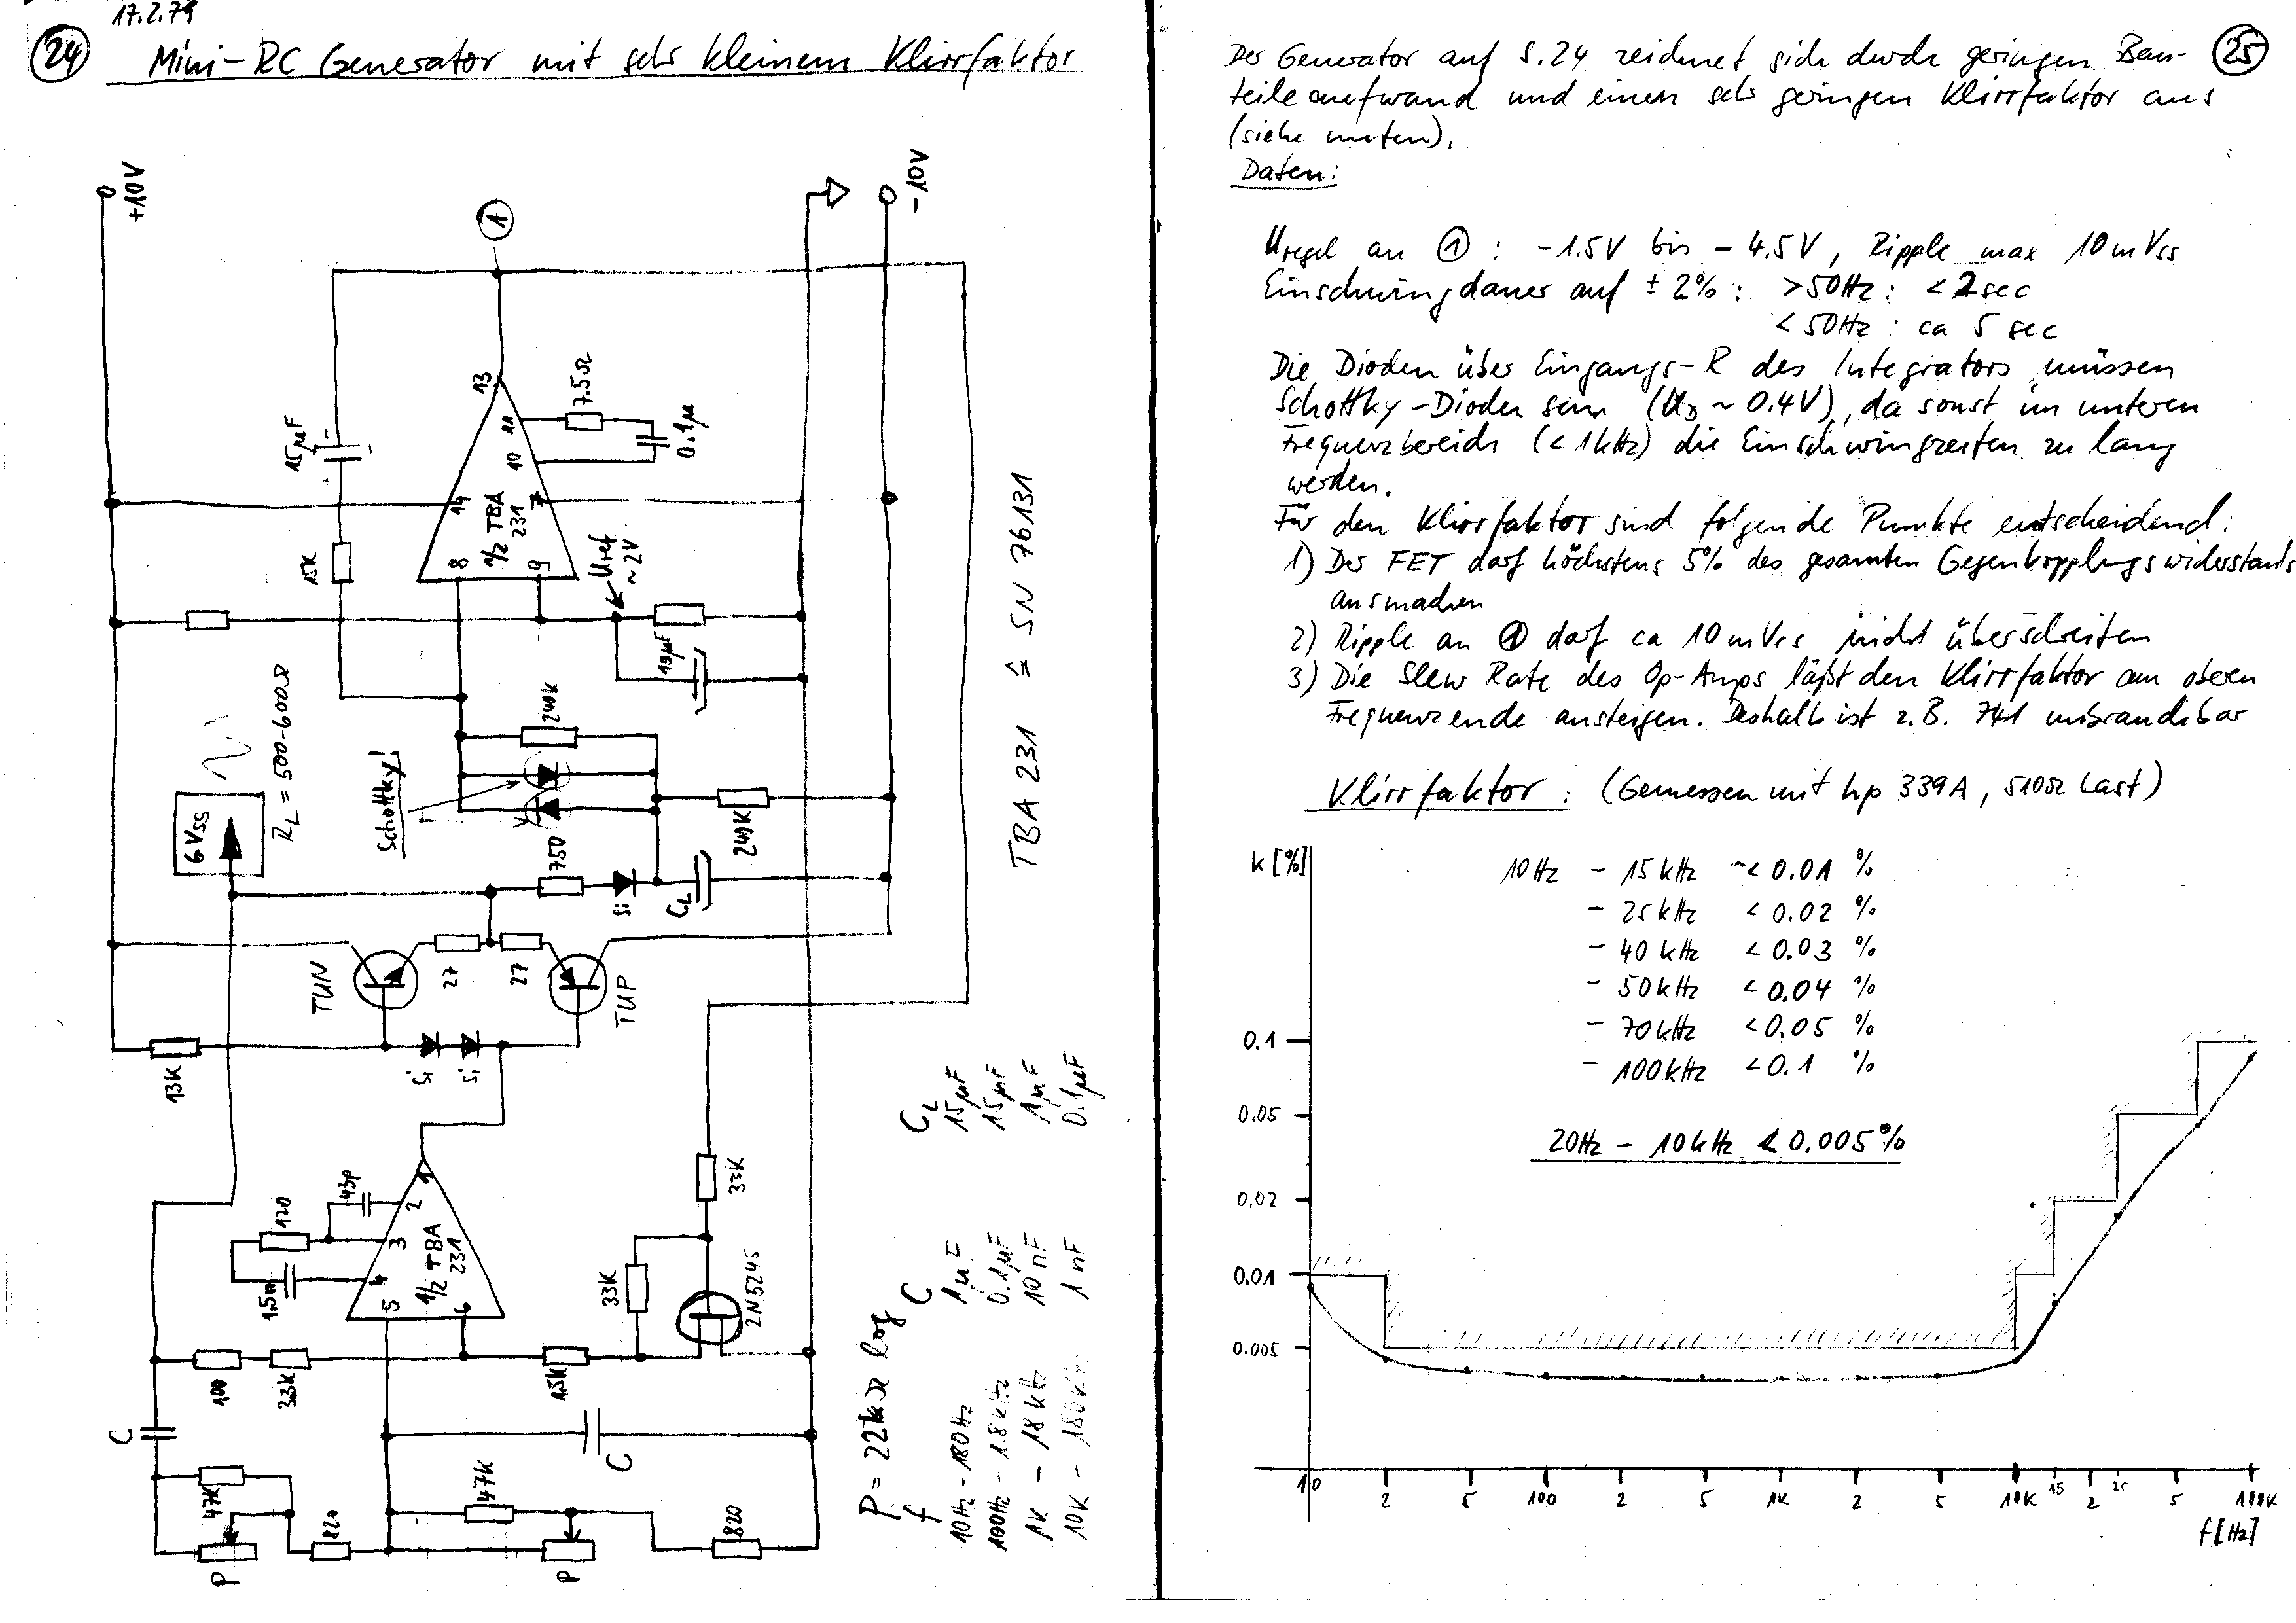 17.2.79
24
Mini-RC Generator mit sehr kleinem Klirrfaktor
+10V
1
-10V
13
15µF
-
+
11
7.5Ω
10
0.1µ
14
1/2 TBA
231
7
15K
8
9
Uref
~2V
10µF
TBA 231 ≙ SN 76131
6Vss
RL = 500-600Ω
Schottky!
240K
750
Si
CL
240K
TUN
27
27
TUP
13K
Si
Si
120
43p
1
2
3
1/2 TBA
231
1.5n
4
5
6
33K
33K
2N5245
100
33K
1.5K
C
C
47K
47K
P
820
P
820
P = 22kΩ log
f C CL
10Hz - 180Hz 1µF 15µF
100Hz - 1.8kHz 0.1µF 15µF
1K - 18kHz 10nF 1µF
10K - 180KHz 1nF 0.1µF
Der Generator auf S.24 zeichnet sich durch geringen Bau-
25
teileaufwand und einen sehr geringen Klirrfaktor aus
(siehe unten).
Daten:
Uregel an ① : -1.5V bis -4.5V, Ripple max 10mVss
Einschwingdauer auf ±2% : >50Hz : <2sec
<50Hz : ca 5 sec
Die Dioden über Eingangs-R des Integrators müssen
Schottky-Dioden sein (UD ~ 0.4V), da sonst im unteren
Frequenzbereich (<1kHz) die Einschwingzeiten zu lang
werden.
Für den Klirrfaktor sind folgende Punkte entscheidend:
1) Der FET darf höchstens 5% des gesamten Gegenkopplungswiderstands
ausmachen
2) Ripple an ① darf ca 10mVss nicht überschreiten
3) Die Slew Rate des Op-Amps läßt den Klirrfaktor am obern
Frequenzende ansteigen. Deshalb ist z.B. 741 unbrauchbar
Klirrfaktor : (Gemessen mit hp 339A, 510Ω Last)
k[%]
10Hz - 15kHz < 0.01 %
- 25kHz < 0.02 %
- 40kHz < 0.03 %
- 50kHz < 0.04 %
- 70kHz < 0.05 %
- 100kHz < 0.1 %
20Hz - 10kHz < 0.005%
0.1
0.05
0,02
0.01
0.005
10 2 5 100 2 5 1K 2 5 10K 15 2 25 5 100K
f[Hz]